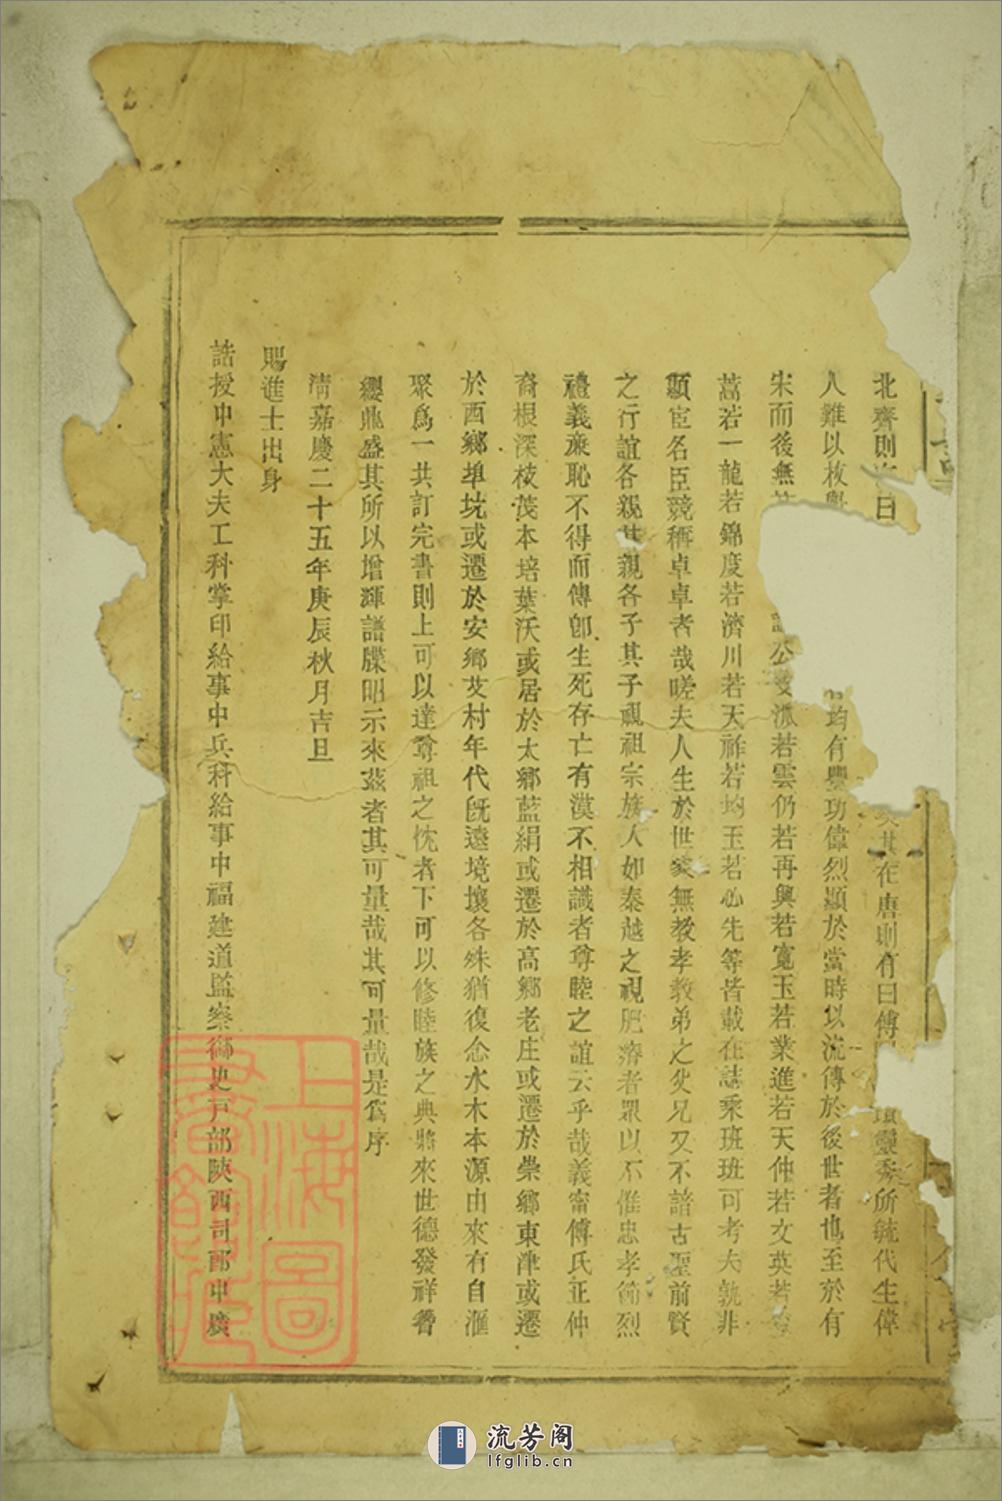 北齊則有曰 其在唐則有曰傅 靈秀所毓代生偉
人難以枚舉 均有豐功偉烈顯於當時以流傳於後世者也至於有
宋而後無 公支派若雲仍若再興若寬玉若業進若天仲若文英若
蒿若一龍若錦度若濟川若天祚若均玉若必先等皆載在誌乘班班可考夫孰非
顯宦名臣競稱卓卓者哉嗟夫人生於世家無教孝教弟之父兄又不諳古聖前賢
之行誼各親其親各子其子視祖宗族人如秦越之視肥瘠者眾以不惟忠孝節烈
禮義廉恥不得而傳卽生死存亡有漠不相識者尊睦之誼云乎哉義甯傅氏正仲
裔根深枝茂本培葉沃或居於太鄉藍絹或遷於高鄉老庄或遷於崇鄉東津或遷
於西鄉埠坑或遷於安鄉艾村年代既遠境壤各殊猶復念水木本源由來有自滙
聚爲一共訂完書則上可以達尊祖之忱者下可以修睦族之典將來世德發祥簪
纓鼎盛其所以增輝譜牒昭示來茲者其可量哉其可量哉是爲序
清嘉慶二十五年庚辰秋月吉旦
賜進士出身
誥授中憲大夫工科掌印給事中兵科給事中福建道監察御史戶部陝西司郎中廣
上海圖書館藏
流芳阁
lfglib.cn